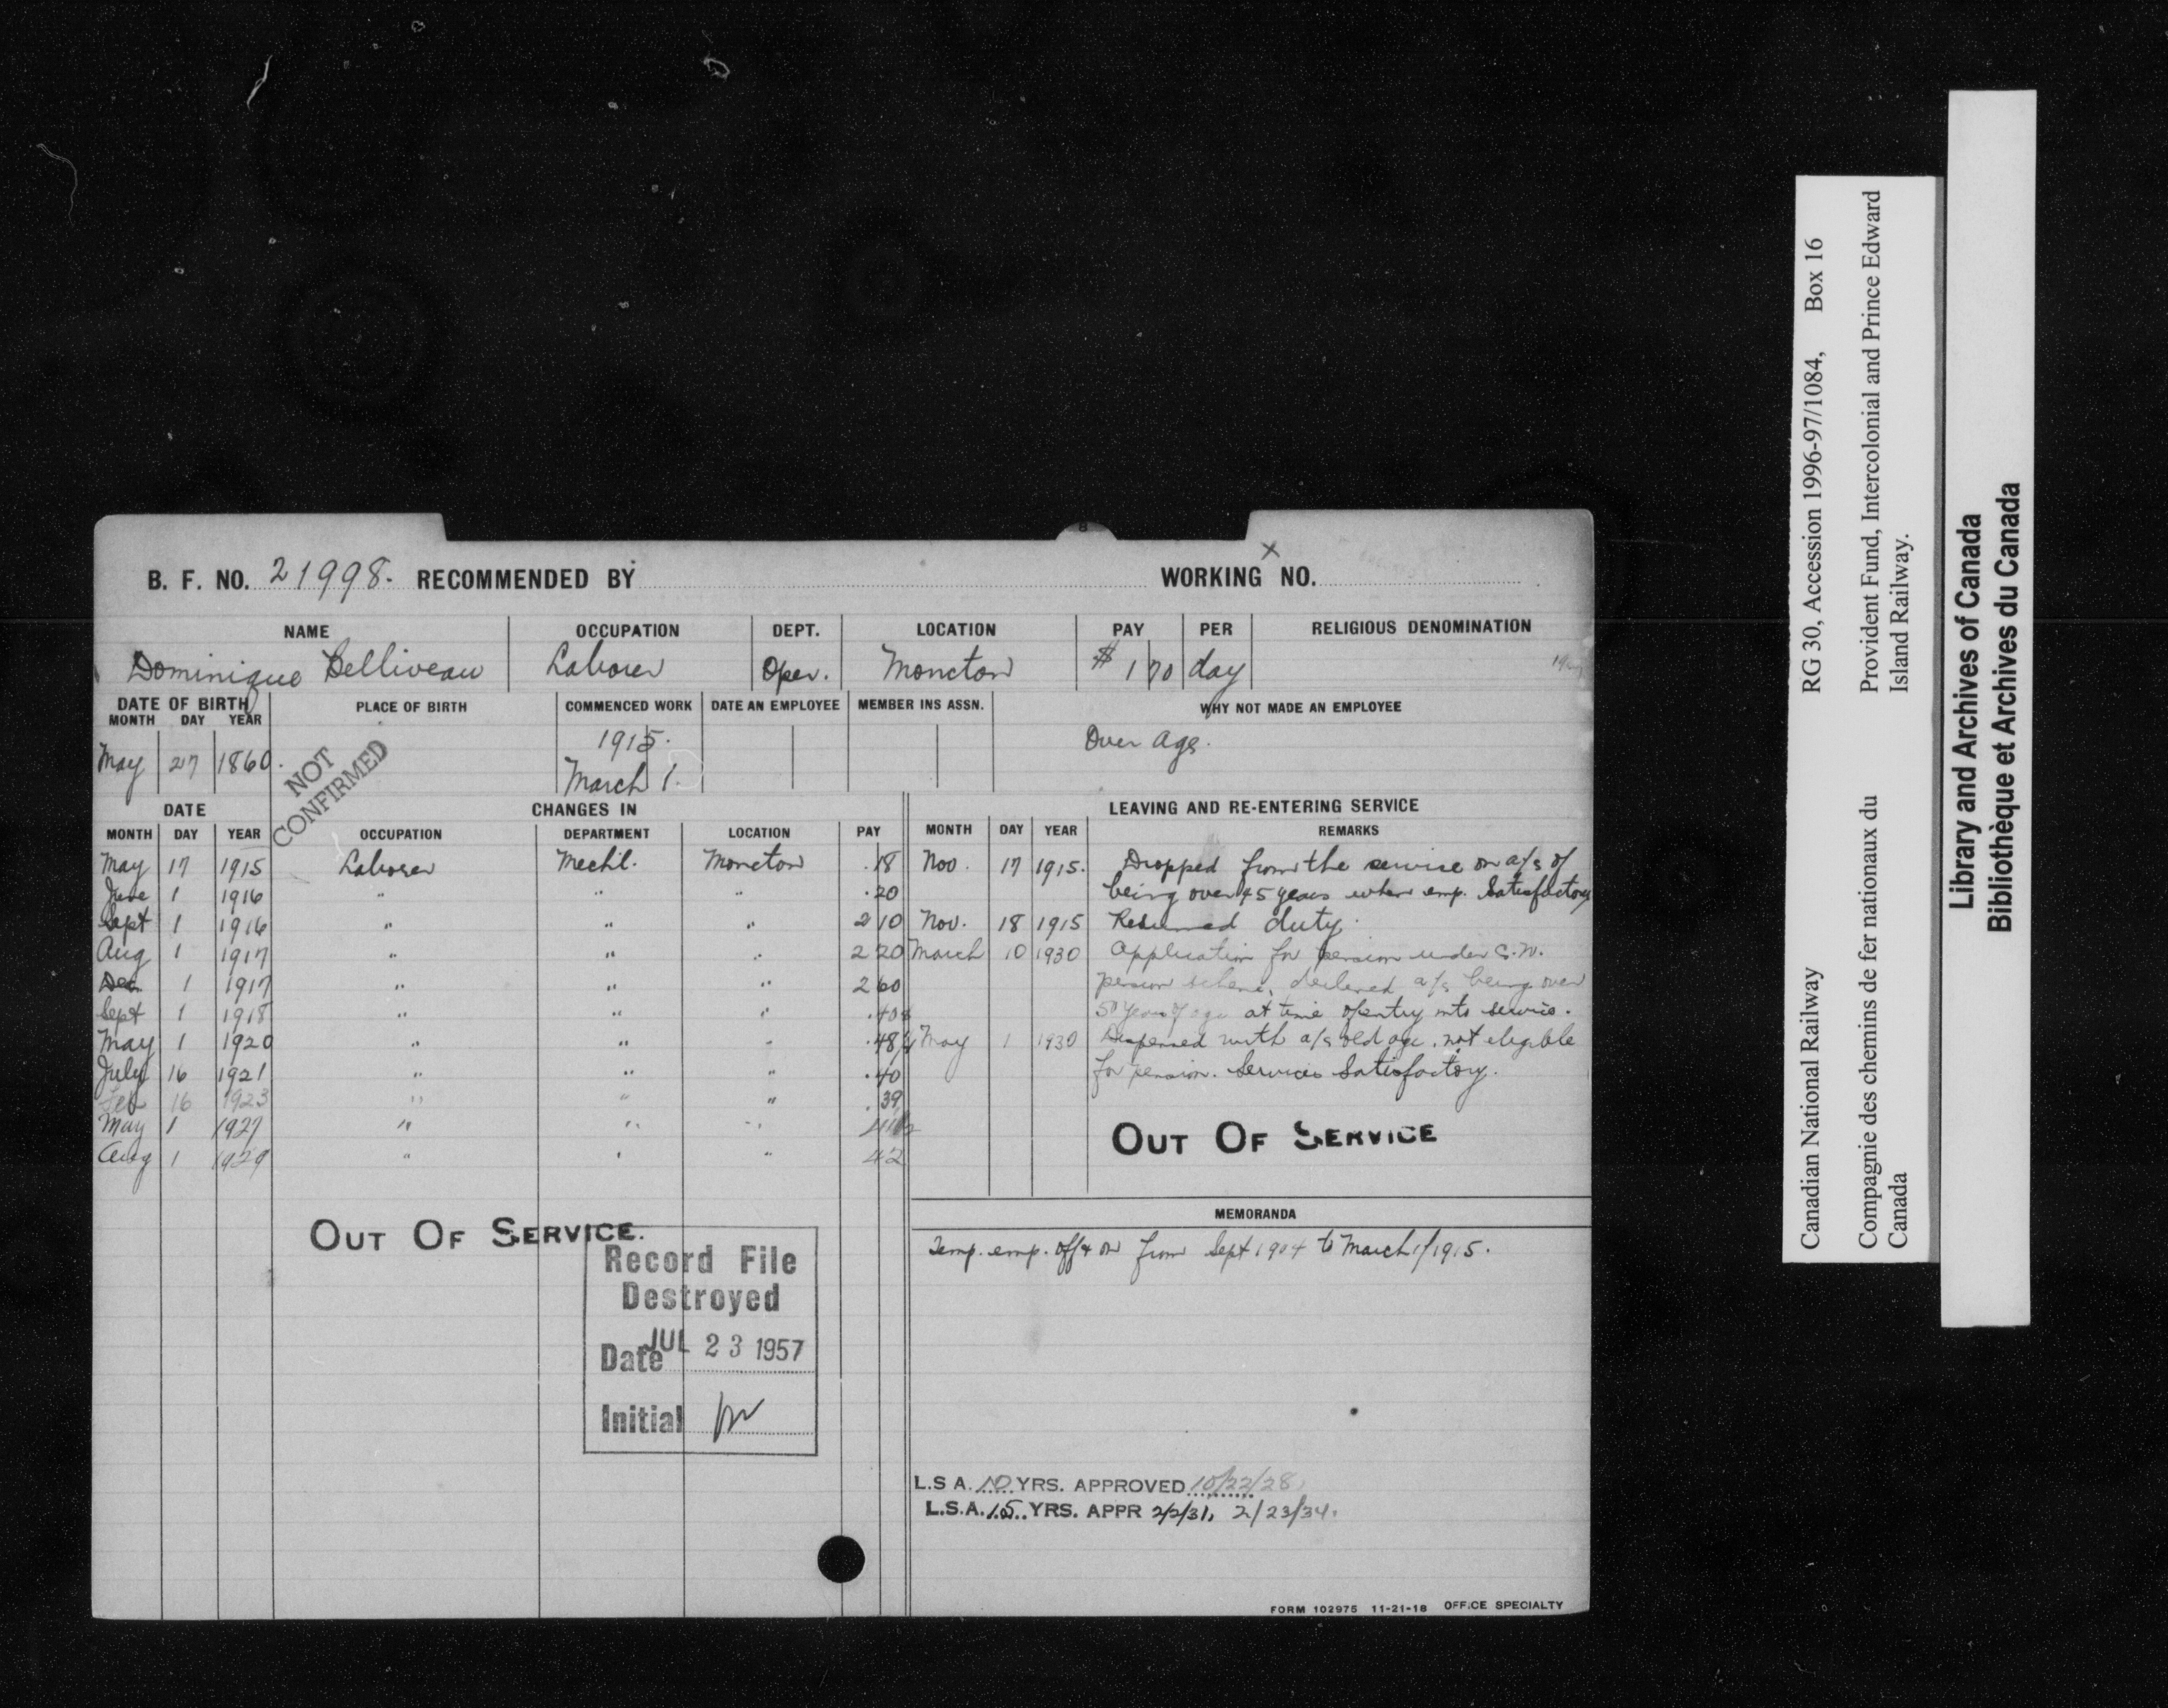 B. F. NO. 21998. RECOMMENDED BY
WORKING NO.
X
8
NAME OCCUPATION DEPT. LOCATION PAY PER RELIGIOUS DENOMINATION
Dominique Belliveau Laborer Oper. Moncton $ 1 70 day
DATE OF BIRTH PLACE OF BIRTH COMMENCED WORK DATE AN EMPLOYEE MEMBER INS ASSN. WHY NOT MADE AN EMPLOYEE
MONTH DAY YEAR
May 27 1860. 1915. March 1. Over age.
NOT CONFIRMED
DATE CHANGES IN LEAVING AND RE-ENTERING SERVICE
MONTH DAY YEAR OCCUPATION DEPARTMENT LOCATION PAY MONTH DAY YEAR REMARKS
May 17 1915 Laborer Mechl. Moncton .18 Nov. 17 1915. Dropped from the service on a/c of
June 1 1916 " " " .20 being over 45 years when emp. Satisfactory
Sept 1 1916 " " " 2 10 Nov. 18 1915 Resumed duty.
Aug 1 1917 " " " 2 20 March 10 1930 Application for pension under C.N.
Dec 1 1917 " " " 2 60 pension scheme, declined a/c being over
Sept 1 1918 " " " .40 50 years of age at time of entry into service.
May 1 1920 " " " .48½ May 1 1930 Dispensed with a/c old age, not eligible
July 16 1921 " " " .40 for pension. Services Satisfactory.
Feb 16 1923 " " " .39
May 1 1927 " " "
Aug 1 1929 " " " 42
OUT OF SERVICE
OUT OF SERVICE.
MEMORANDA
Temp. emp. off & on from Sept 1904 to March 1/1915.
Record File
Destroyed
Date JUL 23 1957
Initial
L.S A. 10 YRS. APPROVED 10/22/28
L.S.A. 15 YRS. APPR 2/2/31, 2/23/34.
FORM 102975 11-21-18 OFFICE SPECIALTY
Canadian National Railway RG 30, Accession 1996-97/1084, Box 16
Compagnie des chemins de fer nationaux du Canada
Provident Fund, Intercolonial and Prince Edward Island Railway.
Library and Archives of Canada
Bibliothèque et Archives du Canada